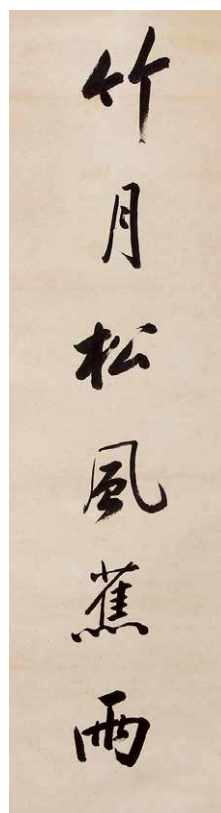 竹月松風蕉雨